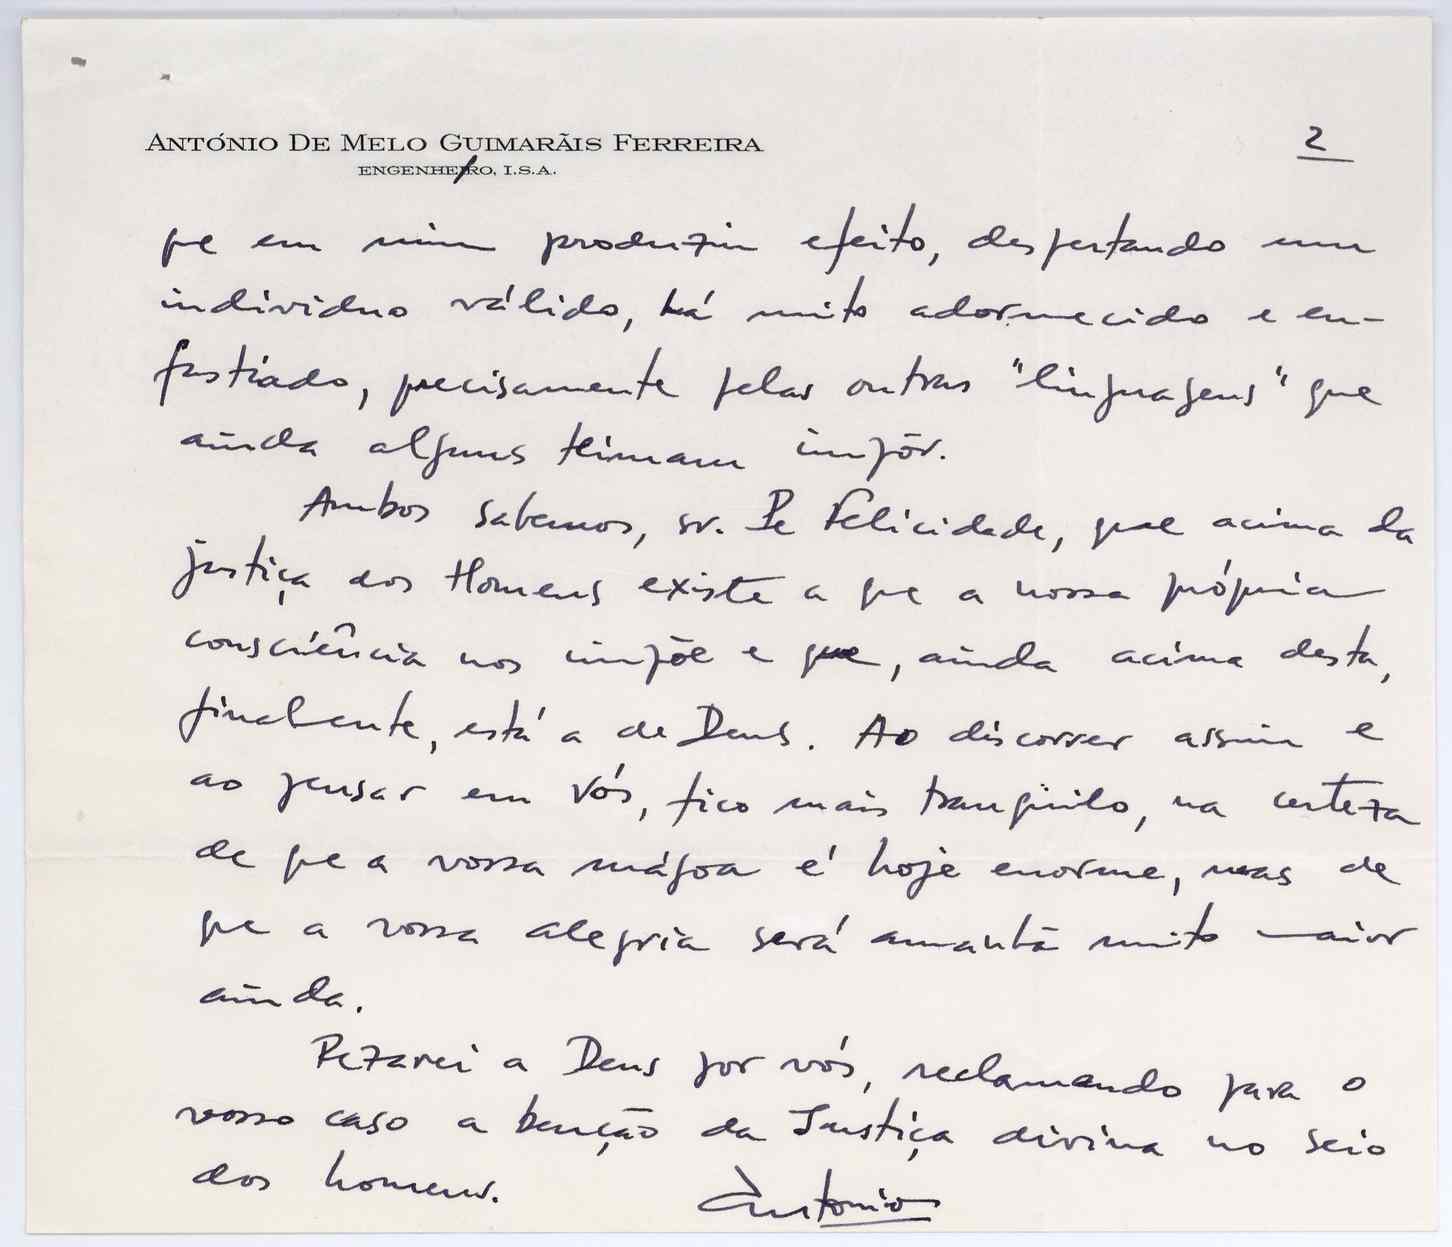 ANTÓNIO DE MELO GUIMARÃIS FERREIRA
ENGENHEIRO, I.S.A.
2
que em mim produziu efeito, despertando um
individuo válido, há muito adormecido e en-
fastiado, precisamente pelas outras "linguagens" que
ainda alguns teimam impôr.
Ambos sabemos, sr. Pe Felicidade, que acima da
justiça dos Homens existe a que a nossa própria
consciência nos impõe e que, ainda acima desta,
finalmente, está a de Deus. Ao discorrer assim e
ao pensar em Vós, fico mais tranqüilo, na certeza
de que a vossa mágoa é hoje enorme, mas de
que a vossa alegria será amanhã muito maior
ainda.
Rezarei a Deus por vós, reclamando para o
vosso caso a benção da Justiça divina no seio
dos homens.
António